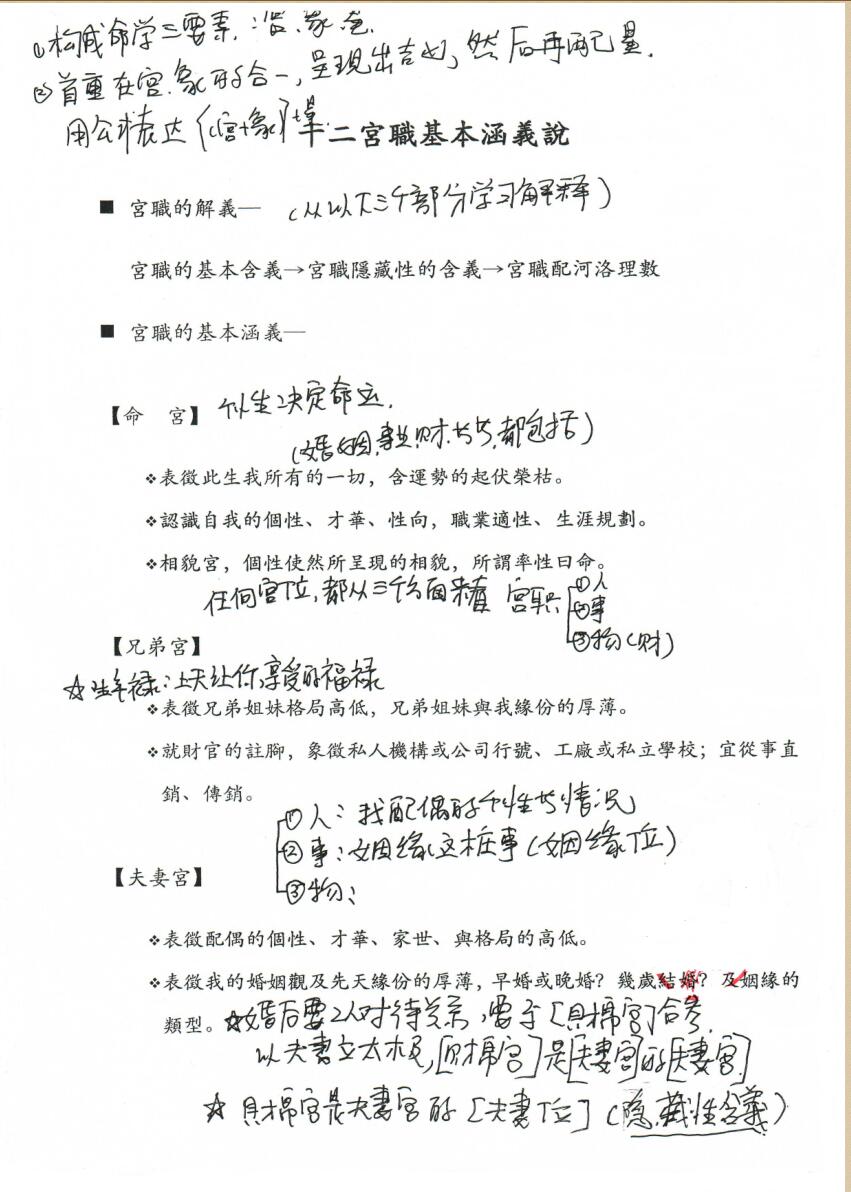 ①构成命学三要素:宫、象、色.
②首重在宫.象的合一,呈现出吉凶,然后再配己量.
用公术表达{(宫+象)+量
十二宮職基本涵義說
■ 宮職的解義—（从以下三个部分学习解释）
宮職的基本含義→宮職隱藏性的含義→宮職配河洛理數
■ 宮職的基本涵義—
【命　宮】 个性决定命运.
(婚姻,事业,财,等等,都包括)
❖表徵此生我所有的一切，含運勢的起伏榮枯。
❖認識自我的個性、才華、性向，職業適性、生涯規劃。
❖相貌宮，個性使然所呈現的相貌，所謂率性曰命。
任何宫位,都从三个方面来看 宫职 ①人
②事
③物(财)
【兄弟宮】
☆生年禄:上天让你享受的福禄
❖表徵兄弟姐妹格局高低，兄弟姐妹與我緣份的厚薄。
❖就財官的註腳，象徵私人機構或公司行號、工廠或私立學校；宜從事直
銷、傳銷。
①人:我配偶的个性与情况
②事:姻缘这桩事(姻缘位)
【夫妻宮】
③物:
❖表徵配偶的個性、才華、家世、與格局的高低。
❖表徵我的婚姻觀及先天緣份的厚薄，早婚或晚婚？幾歲結婚？及姻緣的
類型。☆婚后要2人对待关系,要于[財帛宫]合参.
以夫妻立太极,[财帛宫]是[夫妻宫]的[夫妻宫]
☆ 财帛宫是夫妻宫的[夫妻位](隐藏性含義)